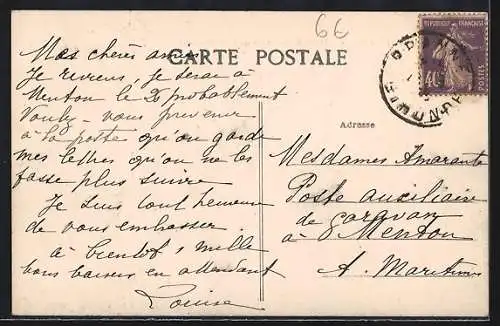 6€
CARTE POSTALE
REPUBLIQUE FRANÇAISE
40c
POSTES
GIRONDE
Mes chères amies
Je reviens, je serai à
Menton le 20 probablement
Voulez-vous prévenir
à la poste qu'on garde
mes lettres qu'on ne les
fasse plus suivre
Je suis tout heureuse
de vous embrasser
à bientôt, mille
bons baisers en attendant
Louise
Adresse
Mesdames Amarante
Poste auxiliaire
de garavan
à Menton
A. Maritimes